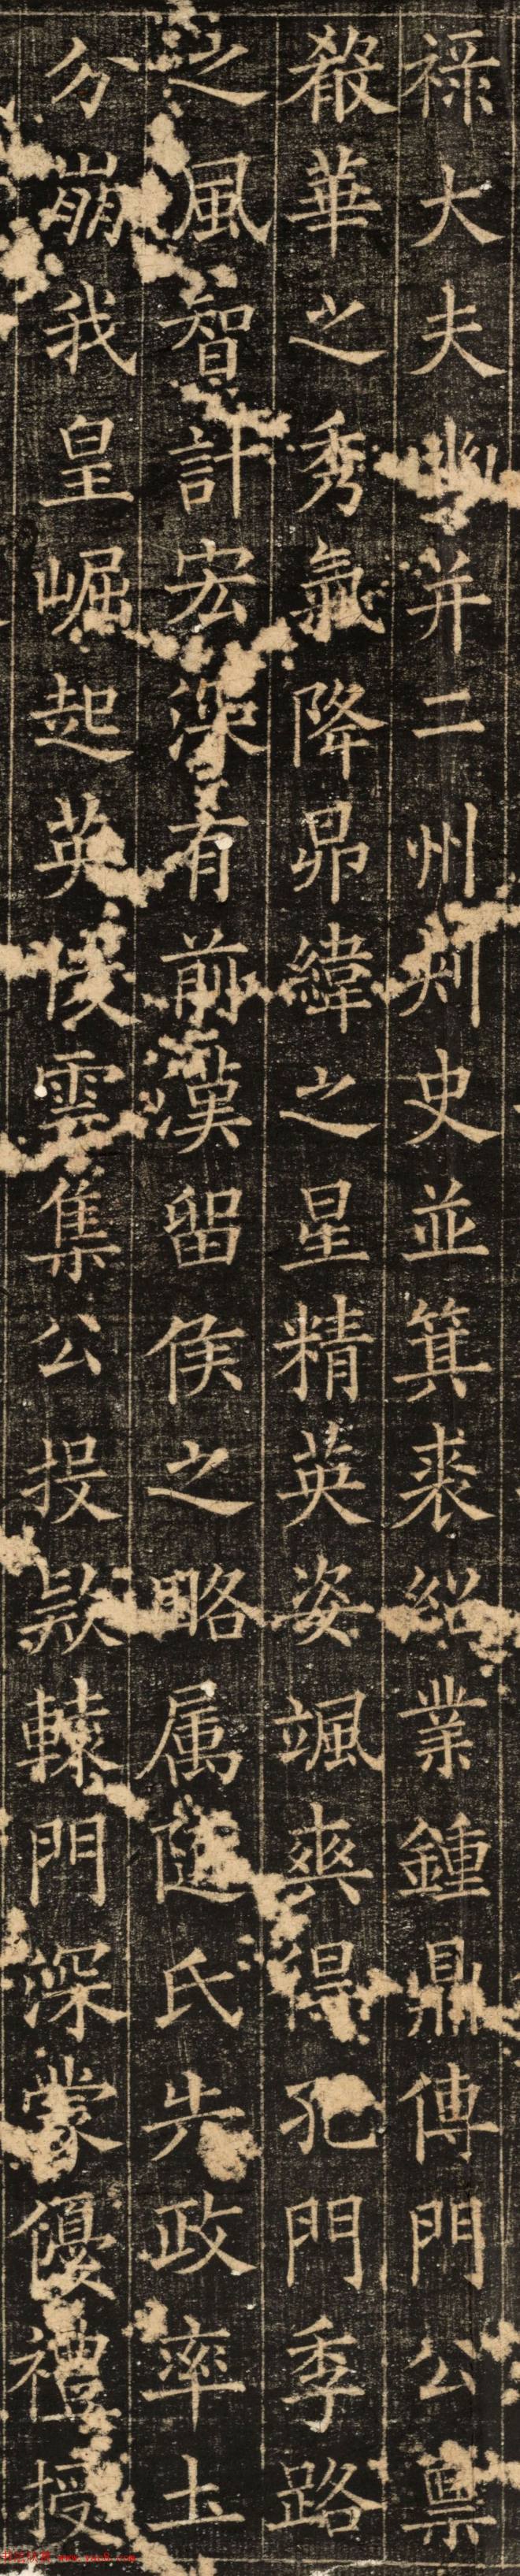 禄大夫幽并二州刾史並箕裘紹業鍾鼎傳門公禀
毅華之秀氣降昴緯之星精英姿颯爽得孔門季路
之風智計宏深有前漢留侯之略属隨氏失政率土
分崩我皇崛起英俊雲集公投款轅門深蒙優禮授